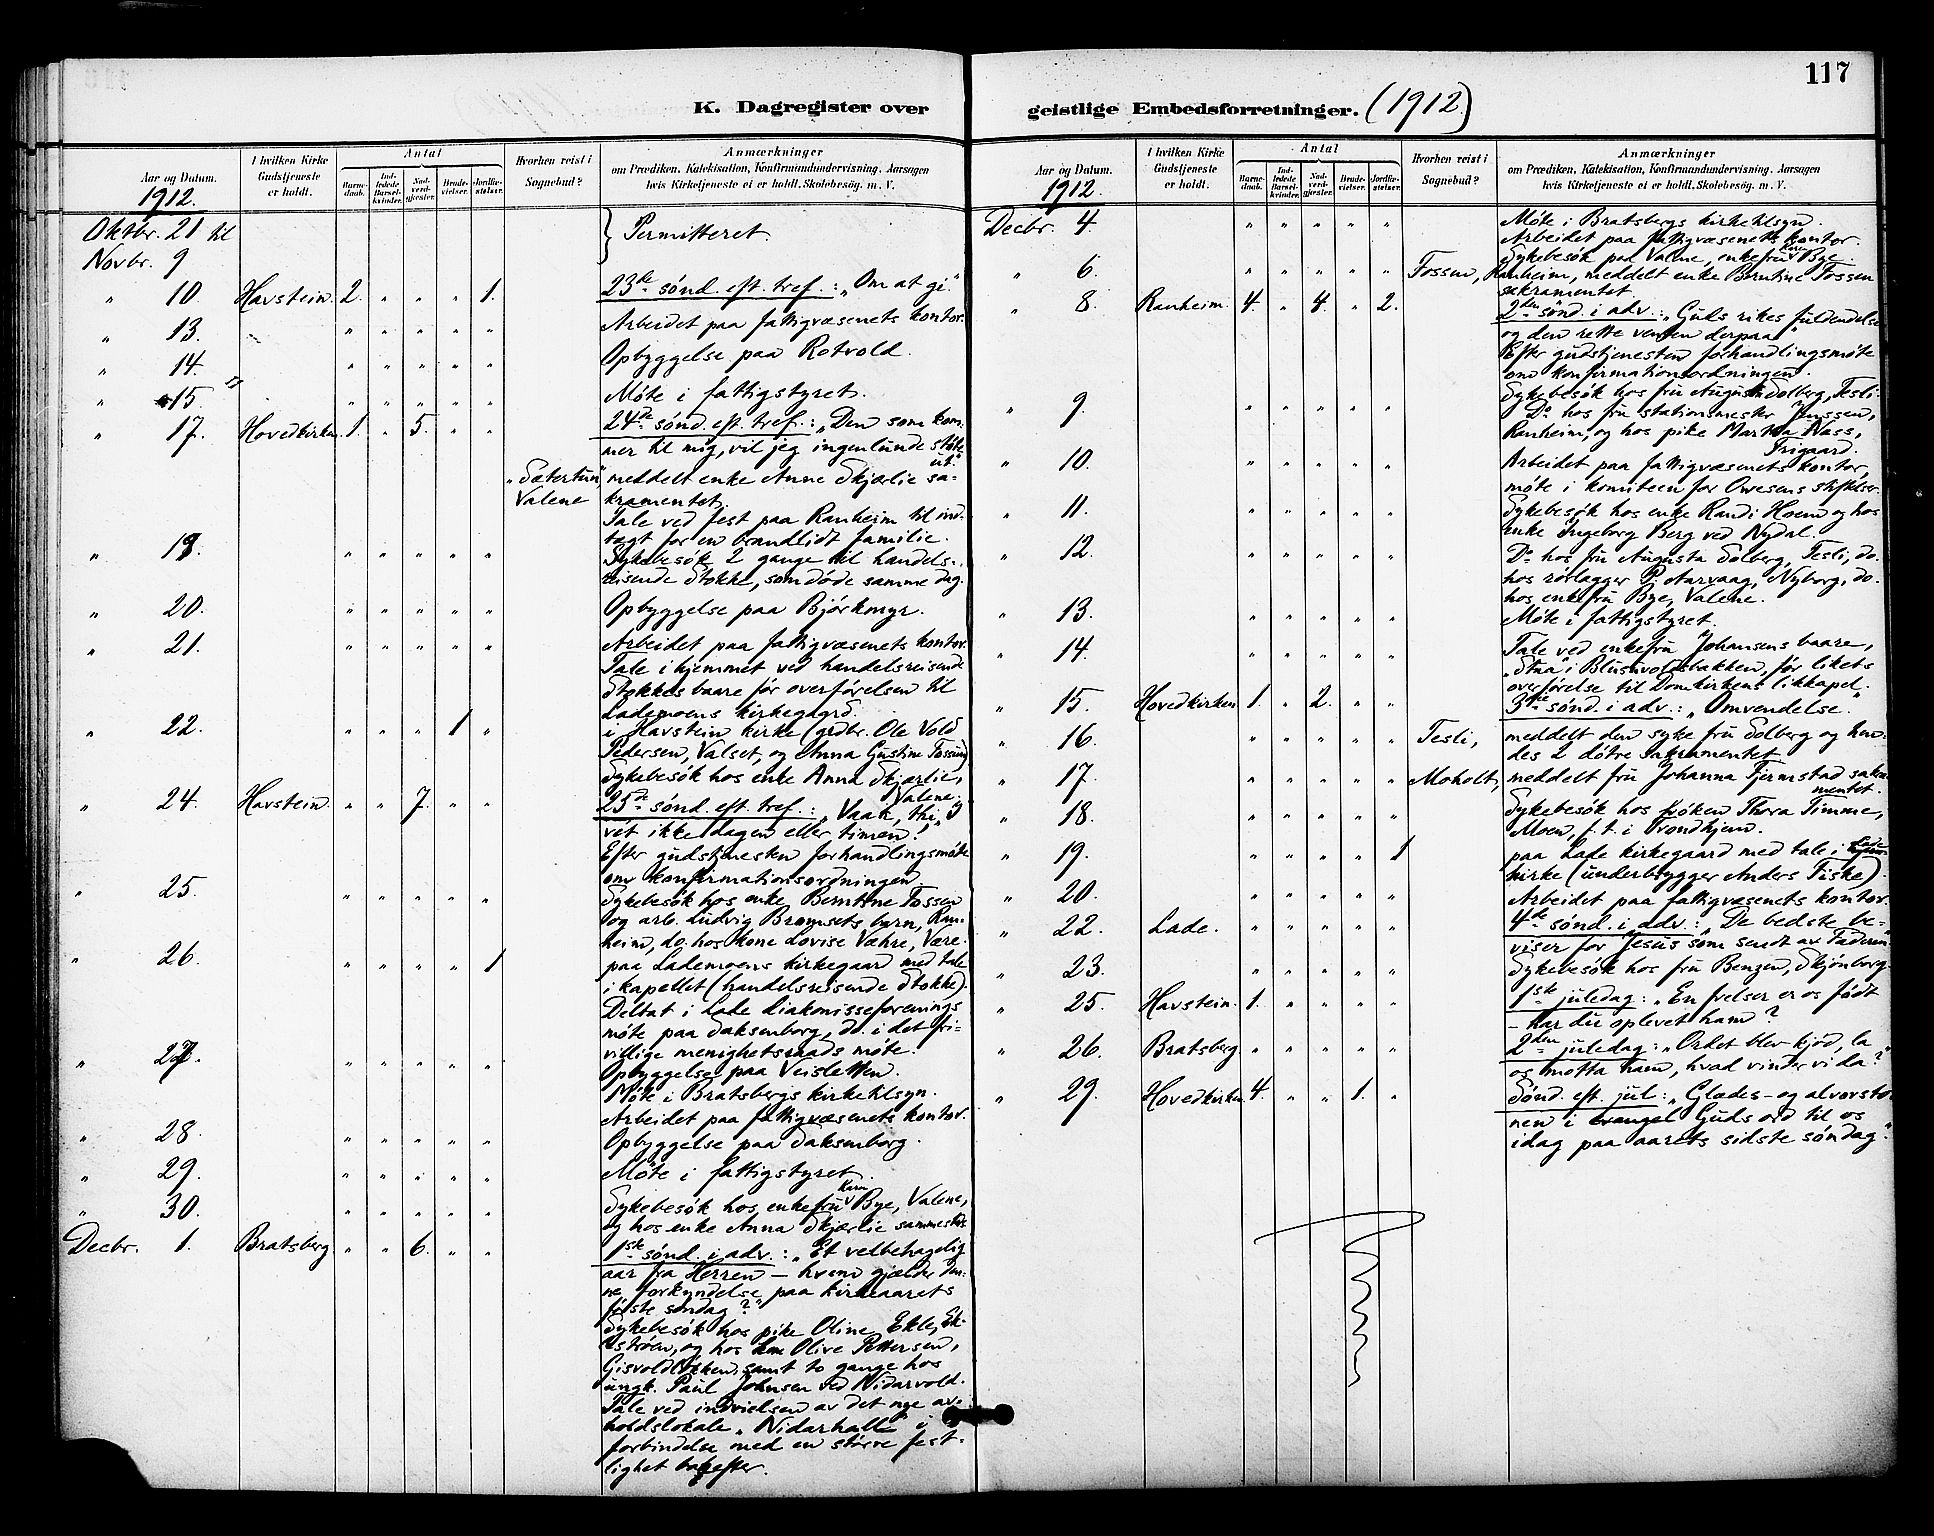 117
K. Dagregister over geistlige Embedsforretninger. (1912.)
Aar og Datum.
1912.
I hvilken Kirke Gudstjeneste er holdt.
Antal
Barnedaab.
Indledede Barselkvinder.
Nadverdgjester.
Brudevielser.
Jordfæstelser.
Hvorhen reist i Sognebud?
Anmærkninger
om Prædiken, Katekisation, Konfirmandundervisning, Aarsagen
hvis Kirketjeneste ei er holdt, Skolebesøg. m. V.
Oktbr. 21 til
Novbr. 9
Permitteret.
" 10. Havstein. 2. " " " 1. 23de sønd. eft. tref.: „Om at gi."
" 13. " " " " " Arbeidet paa fattigvæsenets kontor.
" 14. " " " " " Opbyggelse paa Rotvold.
" 15. " " " " " Møte i fattigstyret.
" 17. Hovedkirken 1. " 5. " " 24de sønd. eft. tref.: „Den som kom-
mer til mig, vil jeg ingenlunde støte
ut."
Sætertun, meddelt enke Anne Skjærlie sa-
Valene kramentet.
Tale ved fest paa Ranheim til ind-
tægt for en brandlidt familie.
" 19. " " " " " Sykebesøk 2 gange til handels-
reisende Stokke, som døde samme dag.
" 20. " " " " " Opbyggelse paa Bjørkmyr.
" 21. " " " " " Arbeidet paa fattigvæsenets kontor.
Tale i hjemmet ved handelsreisende
Stokkes baare før overførelsen til
Lademoens kirkegård.
" 22. " " " 1 " i Havstein kirke (grdbr. Ole Vold
Pedersen, Valset, og Anna Gustine Fossum)
Sykebesøk hos enke Anna Skjærlie,
Valene.
" 24. Havstein. " " 7. " " 25de sønd. eft. tref.: „Vaak, thi I
vet ikke dagen eller timen!"
Efter gudstjenesten forhandlingsmøte
om konfirmationsordningen
" 25. " " " " " Sykebesøk hos enke Berntine Fossen
og arb. Ludvig Bromsets barn, Ran-
heim, do. hos kone Lovise Væhre, Være.
" 26. " " " " 1 paa Lademoens kirkegaard med tale
i kapellet (handelsreisende Stokke).
Deltat i Lade diakonisseforenings
møte paa Saksenborg, do. i det fri-
villige menighetsraads møte.
" 27. " " " " " Opbyggelse paa Veisletten.
Møte i Bratsbergs kirketilsyn.
Arbeidet paa fattigvæsenets kontor.
" 28. " " " " " Opbyggelse paa Saksenborg.
" 29. " " " " " Møte i fattigstyret.
" 30. " " " " " Sykebesøk hos enkefru Karen Bye, Valene,
og hos enke Anna Skjærlie sammesteds
Decbr. 1. Bratsberg " " 6. " " 1ste sønd. i adv.: „Et velbehagelig
aar fra Herren – hvem gjælder den-
ne forkyndelse paa kirkeaarets
første søndag?"
Sykebesøk hos pike Oline Ekle, Ek-
strøen, og hos Olive Pettersen,
Gisvoldløkken, samt to gange hos
ungk. Paul Johnsen ved Nidarvold.
Tale ved indvielsen av det nye av-
holdslokale „Nidarhall" i
forbindelse med en større fest-
lighet bakefter.
Aar og Datum.
1912.
I hvilken Kirke Gudstjeneste er holdt.
Antal
Barnedaab.
Indledede Barselkvinder.
Nadverdgjester.
Brudevielser.
Jordfæstelser.
Hvorhen reist i Sognebud?
Anmærkninger
om Prædiken, Katekisation, Konfirmandundervisning, Aarsagen
hvis Kirketjeneste ei er holdt, Skolebesøg. m. V.
Decbr. 4. " " " " " Møte i Bratsbergs kirketilsyn.
Arbeidet paa fattigvæsenets kontor.
Sykebesøk paa Valene, enkefru Karen Bye.
" 6. " " " " " Fossen, Ranheim, meddelt enke Berntine Fossen
sakramentet
" 8. Ranheim. 4. " 4. " 2. 2den sønd. i adv.: „Guds rikes fuldendelse
og den rette venten derpaa"
Efter gudstjenesten forhandlingsmøte
om konfirmationsordningen.
" 9. " " " " " Sykebesøk hos fru Augusta Solberg, Tesli.
Do. hos fru stationsmester Jenssen,
Ranheim, og hos pike Martha Næss,
Frigaard.
" 10. " " " " " Arbeidet paa fattigvæsenets kontor,
møte i komiteen for Owesens stiftelser.
" 11. " " " " " Sykebesøk hos enke Randi Hoem og hos
enke Ingeborg Berg ved Nydal.
" 12. " " " " " Do. hos fru Augusta Solberg, Tesli, do.
hos rørlægger P. Aarvaag, Nyborg, do.
hos enkefru Bye, Valene.
" 13. " " " " " Møte i fattigstyret.
" 14. " " " " " Tale ved enkefru Johansens baare,
i Blusuvoldsbakken, før likets
overførelse til Domkirkens likkapel.
" 15. Hovedkirken 1. " 2. " " 3die sønd. i adv.: „Omvendelse."
" 16. " " " " " Tesli, meddelt den syke fru Solberg og hen-
des 2 døtre sakramentet
" 17. " " " " " Moholt, meddelt fru Johanna Fjermstad sakra-
mentet.
" 18. " " " " " Sykebesøk hos frøken Thora Timme,
Moen, f. t. i Trondhjem.
" 19. " " " " 1 paa Lade kirkegaard med tale i Lade
kirke (underbygger Anders Fiske).
" 20. " " " " " Arbeidet paa fattigvæsenets kontor.
" 22. Lade. " " " " " 4de sønd. i adv.: „De bedste be-
viser for Jesus som sendt av Faderen."
" 23. " " " " " Sykebesøk hos fru Benzen, Skjønborg.
" 25. Havstein. 1. " " " " 1ste juledag: „En frelser er os født
– har du oplevet ham?"
" 26. Bratsberg. " " " " " 2den juledag: „Ordet blev kjød, la
os motta ham, hvad vinder vi da?"
" 29. Hovedkirken 4. " " 1. " Sønd. eft. jul: „Glædes- og alvorsto-
nen i Guds ord til os
idag paa aarets sidste søndag."